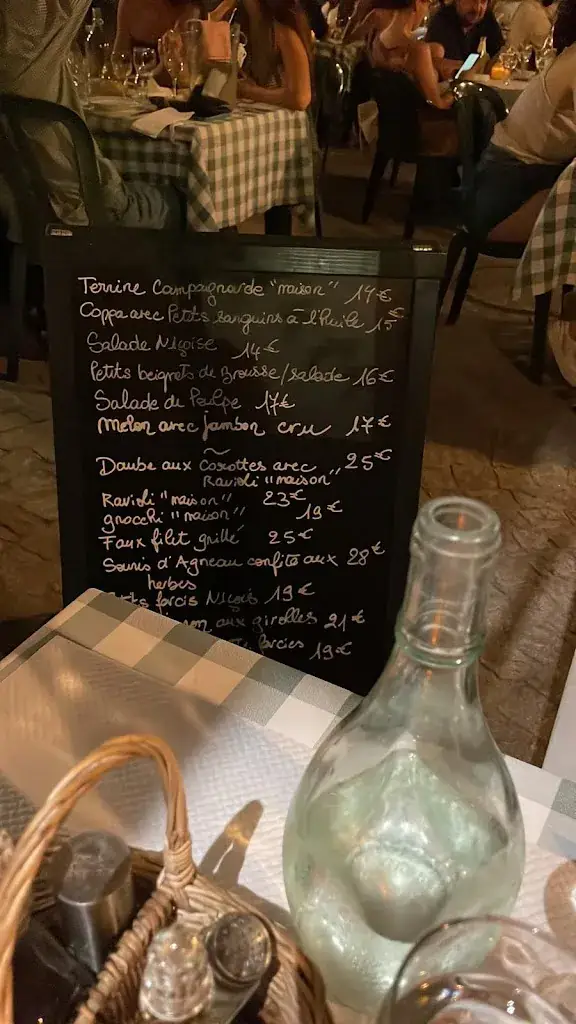 Terrine Campagnarde "maison" 14€
Coppa avec Petits sanguins à l'huile 15€
Salade Niçoise 14€
Petits beignets de Brousse/salade 16€
Salade de Poulpe 17€
Melon avec jambon cru 17€
~
Daube aux Carottes avec 25€
Ravioli "maison"
Ravioli "maison" 23€
gnocchi "maison" 19€
Faux filet grillé 25€
Souris d'Agneau confite aux 28€
herbes
farcis Niçois 19€
aux girolles 21€
farcies 19€